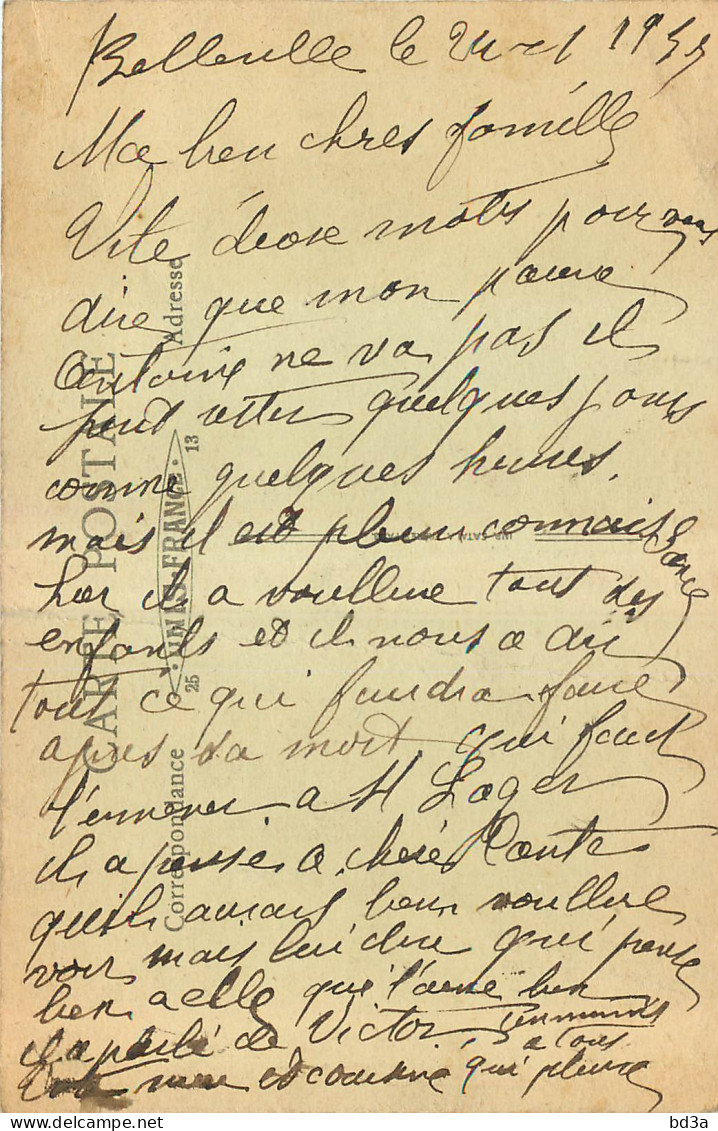 Belleville le 21 1955
Ma bien chres famille
Vite deose mots pour vous
dire que mon pauvre
Antoine ne va pas il
peut rester quelques jours
comme quelques heures.
mais il est plein connais
sance
hier il a voullue tout des
enfants et il nous a dit
tout ce qui faudra faire
apres sa mort qui faut
l'enmener a St Lager
il a pensé a chère Tante
quil aurais bien voullue
voir mais lui dire qui pense
bien a elle qui l'aime bien
il a parlé de Victor
a tous
et comme qui pleure
CARTE POSTALE
Correspondance
Adresse
25 UNIS FRANCE 13
bd3a